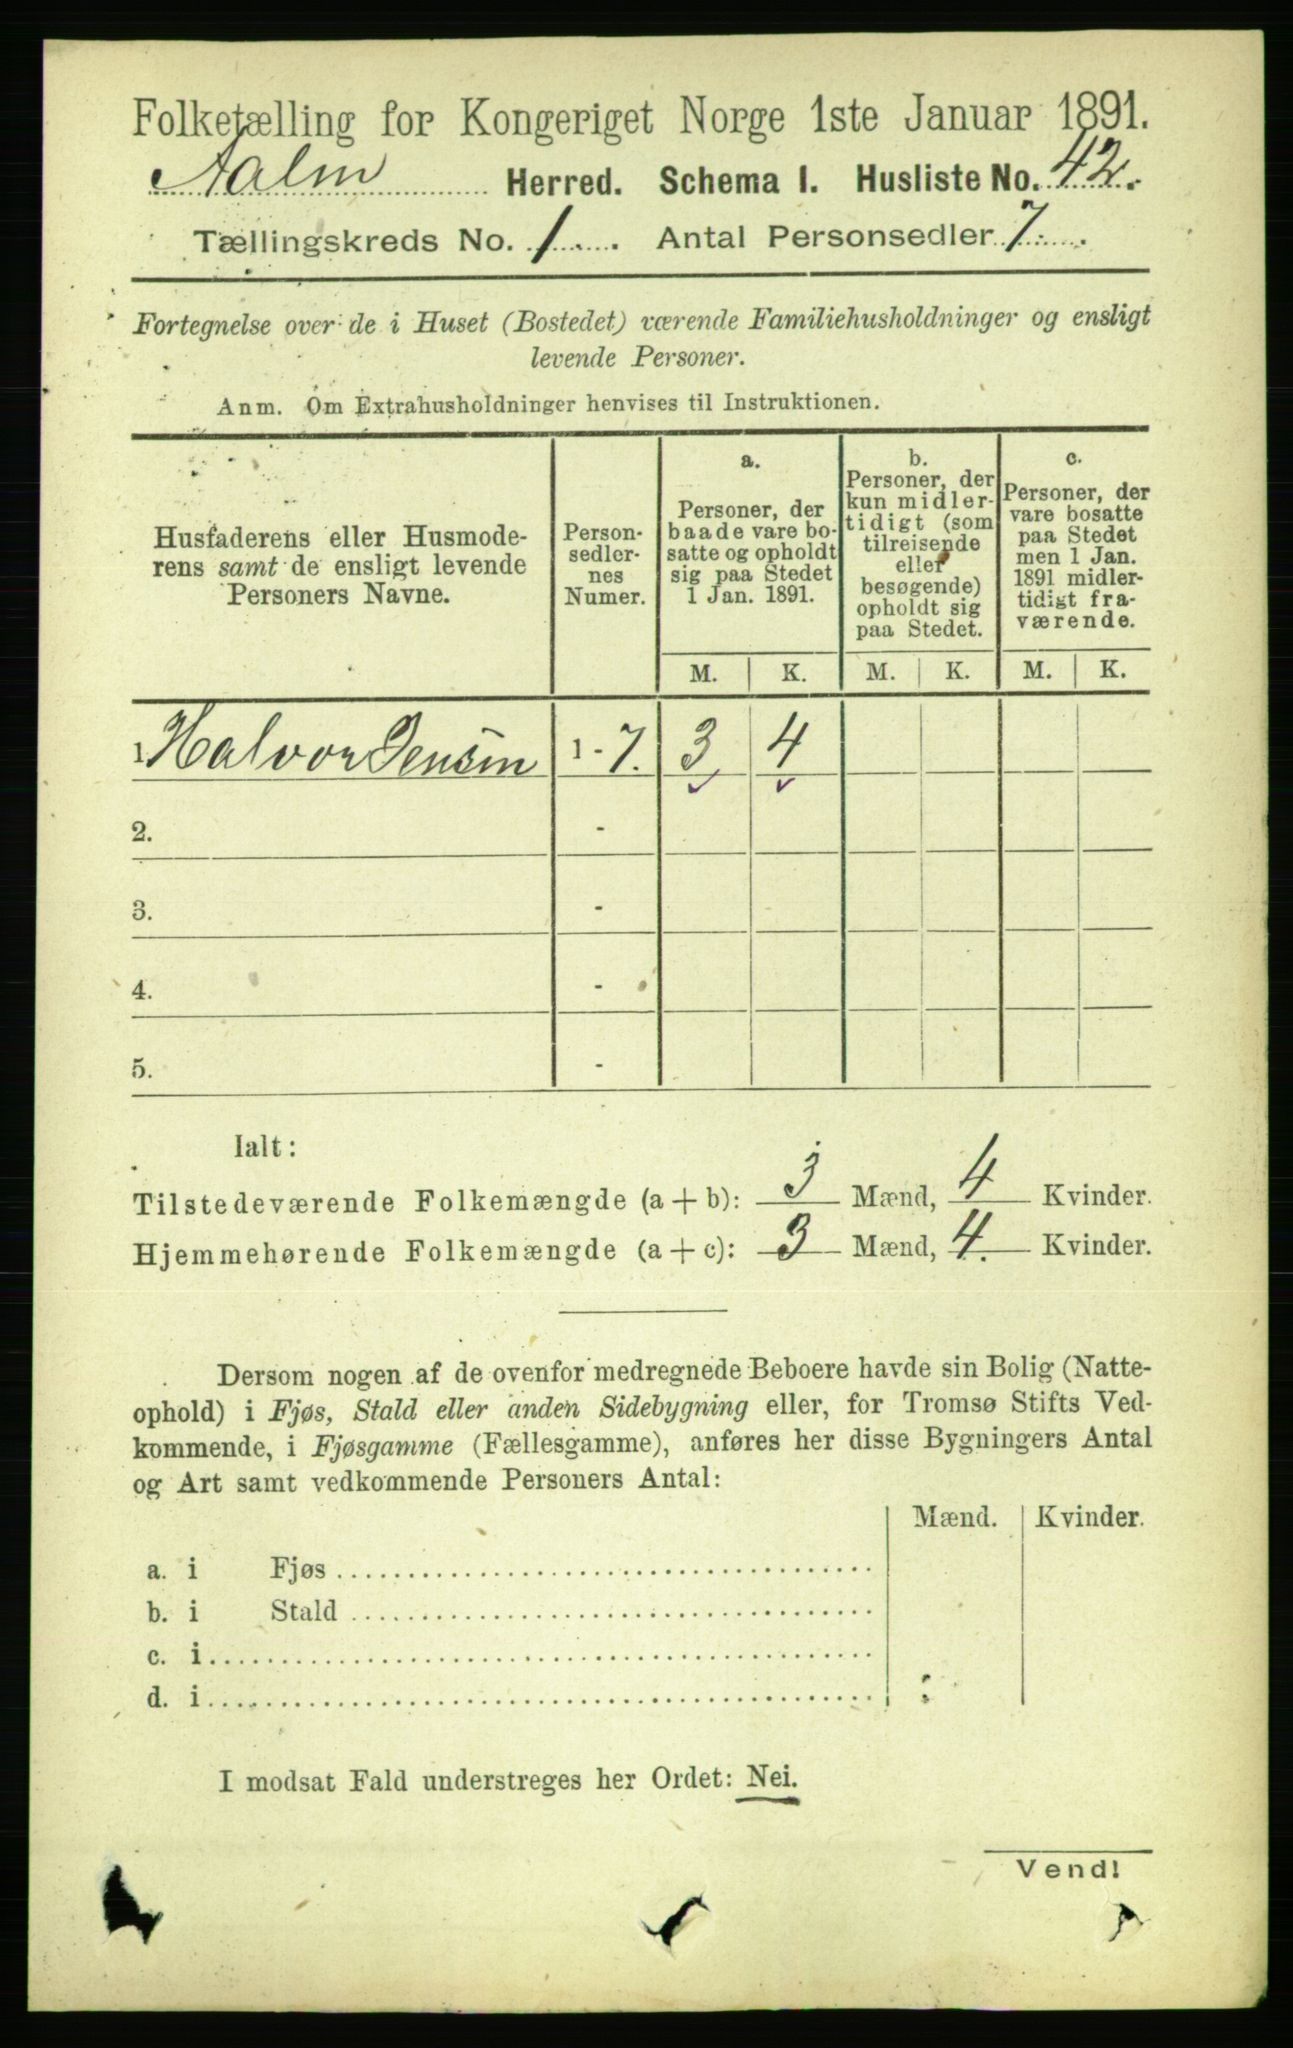 Folketælling for Kongeriget Norge 1ste Januar 1891.
Aalen Herred. Schema I. Husliste No. 42.
Tællingskreds No. 1. Antal Personsedler 7.
Fortegnelse over de i Huset (Bostedet) værende Familiehusholdninger og ensligt
levende Personer.
Anm. Om Extrahusholdninger henvises til Instruktionen.
Husfaderens eller Husmode-
rens samt de ensligt levende
Personers Navne.
Person-
sedler-
nes
Numer.
a.
Personer, der
baade vare bo-
satte og opholdt
sig paa Stedet
1 Jan. 1891.
b.
Personer, der
kun midler-
tidigt (som
tilreisende
eller
besøgende)
opholdt sig
paa Stedet.
c.
Personer, der
vare bosatte
paa Stedet
men 1 Jan.
1891 midler-
tidigt fra-
værende.
M. K. M. K. M. K.
Halvor Jensen 1 - 7. 3 4
2. -
3. -
4. -
5. -
Ialt:
Tilstedeværende Folkemængde (a + b): 3 Mænd, 4 Kvinder.
Hjemmehørende Folkemængde (a + c): 3 Mænd, 4. Kvinder.
Dersom nogen af de ovenfor medregnede Beboere havde sin Bolig (Natte-
ophold) i Fjøs, Stald eller anden Sidebygning eller, for Tromsø Stifts Ved-
kommende, i Fjøsgamme (Fællesgamme), anføres her disse Bygningers Antal
og Art samt vedkommende Personers Antal:
Mænd. Kvinder.
a. i Fjøs
b. i Stald
c. i
d. i
I modsat Fald understreges her Ordet: Nei.
Vend!